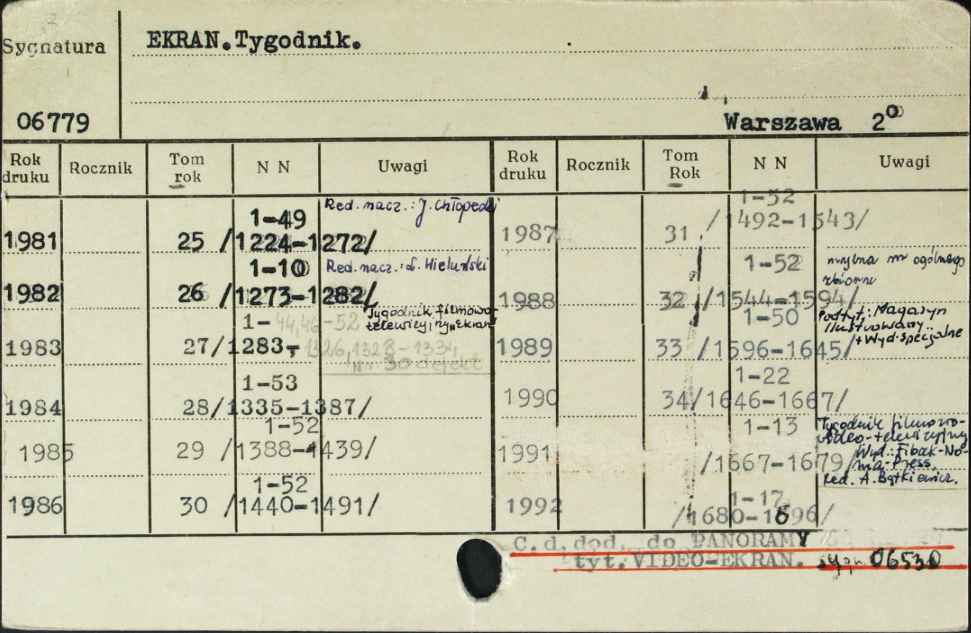 Sygnatura
EKRAN.Tygodnik.
06779
Warszawa 2º
Rok druku Rocznik Tom rok N N Uwagi Rok druku Rocznik Tom Rok N N Uwagi
1981 25 1-49 /1224-1272/ Red. nacz.: J. Chłopecki
1982 26 1-10 /1273-1282/ Red. nacz.: L. Wieluński
1983 27 1-44,46-52 /1283-1326,1328-1334
Tygodnik filmowo-
telewizyjny "Ekran"
1984 28 1-53 /1335-1387/
1985 29 1-52 /1388-1439/
1986 30 1-52 /1440-1491/
1987 31 1-52 /1492-1543/
1988 32 1-52 /1544-1594/
nr ogólnego
zbioru
1989 33 1-50 /1596-1645/
Podtyt.: Magazyn
Ilustrowany
+ Wyd. specjalne
1990 34 1-22 /1646-1667/
1991 1-13 /1667-1679/
Tygodnik filmowo-
video-telewizyjny
Wyd.: Fibak-No-
ma-Press.
Red. A. Bątkiewicz.
1992 1-17 /1680-1696/
C.d.dod. do PANORAMY
tyt. VIDEO-EKRAN. sygn. 06530